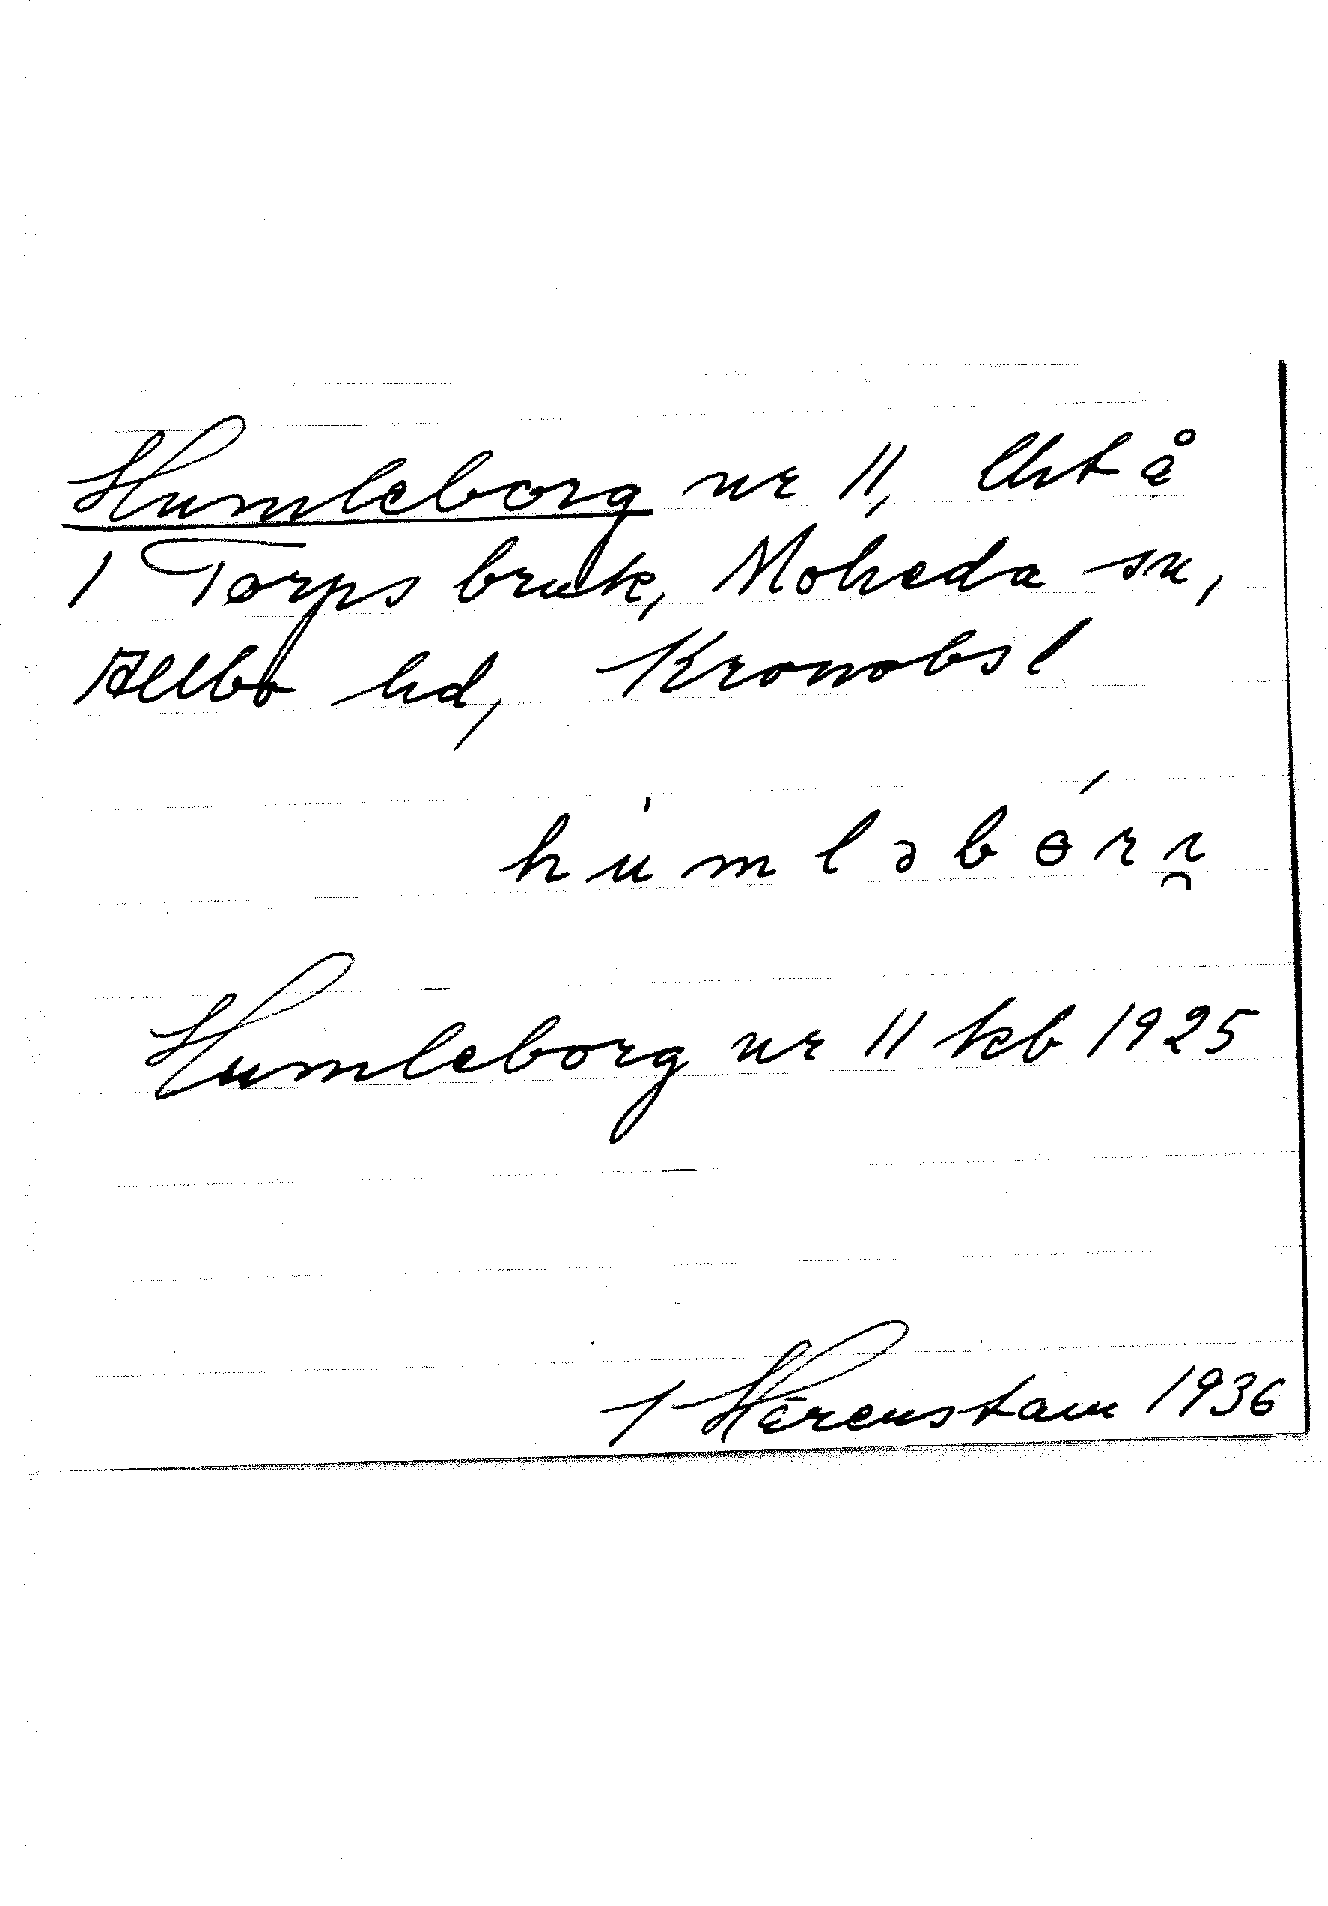 Humleborg nr 11, lht å
1 Torps bruk, Moheda sn,
Allbo hd, Kronobsl
húmləbɵ́rı̯
Humleborg nr 11 kb 1925
1936